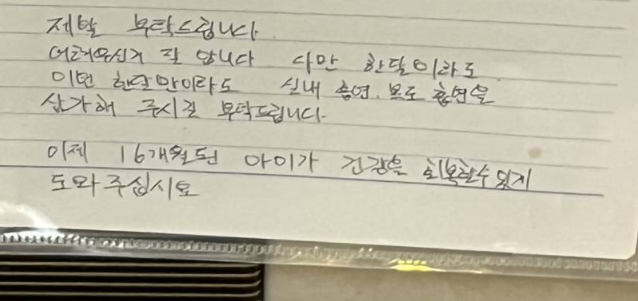 제발 부탁드립니다
어려우신거 잘 압니다 다만 한달이라도
이번 한달만이라도 실내 흡연, 보로 흡연을
삼가해 주시길 부탁드립니다.
이제 16개월된 아이가 건강을 회복할수 있게
도와주십시요